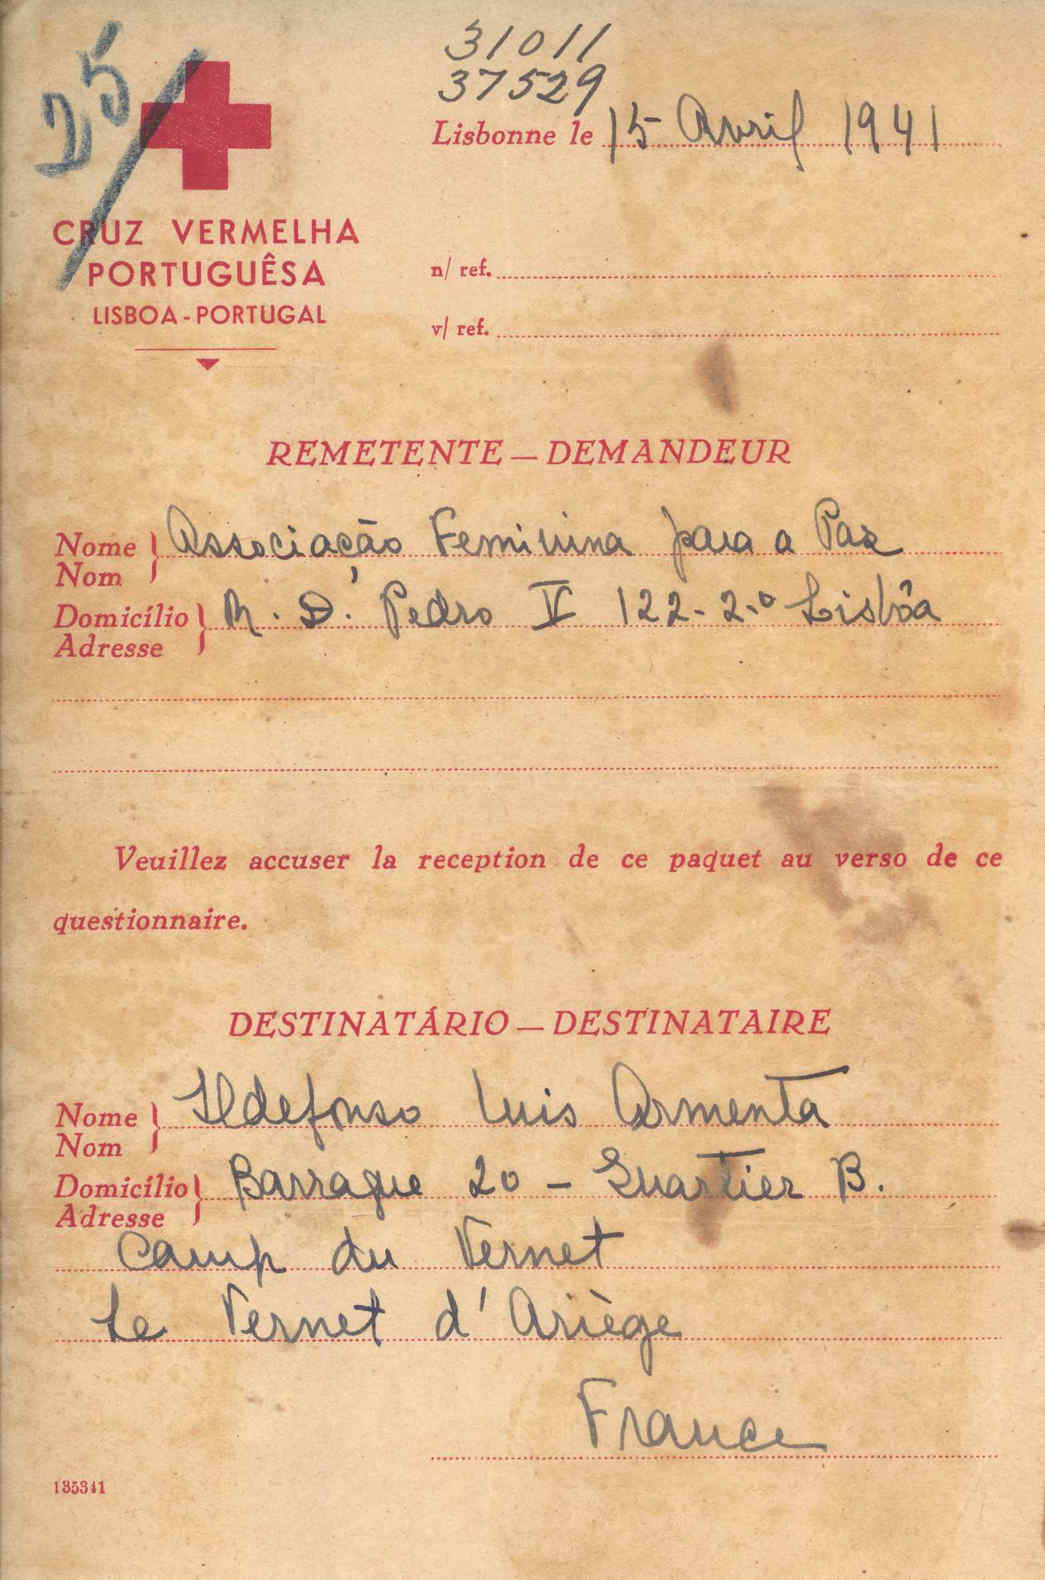 25
31011
37529
Lisbonne le 15 Avril 1941
CRUZ VERMELHA
PORTUGUÊSA
LISBOA-PORTUGAL
n/ ref.
v/ ref.
REMETENTE — DEMANDEUR
Nome Associação Feminina para a Paz
Nom
Domicílio R. D. Pedro V 122-2.º Lisbôa
Adresse
Veuillez accuser la reception de ce paquet au verso de ce
questionnaire.
DESTINATÁRIO — DESTINATAIRE
Nome Ildefonso Luis Armenta
Nom
Domicílio Barraque 20 - Quartier B.
Adresse
Camp du Vernet
Le Vernet d'Ariège
France
135341